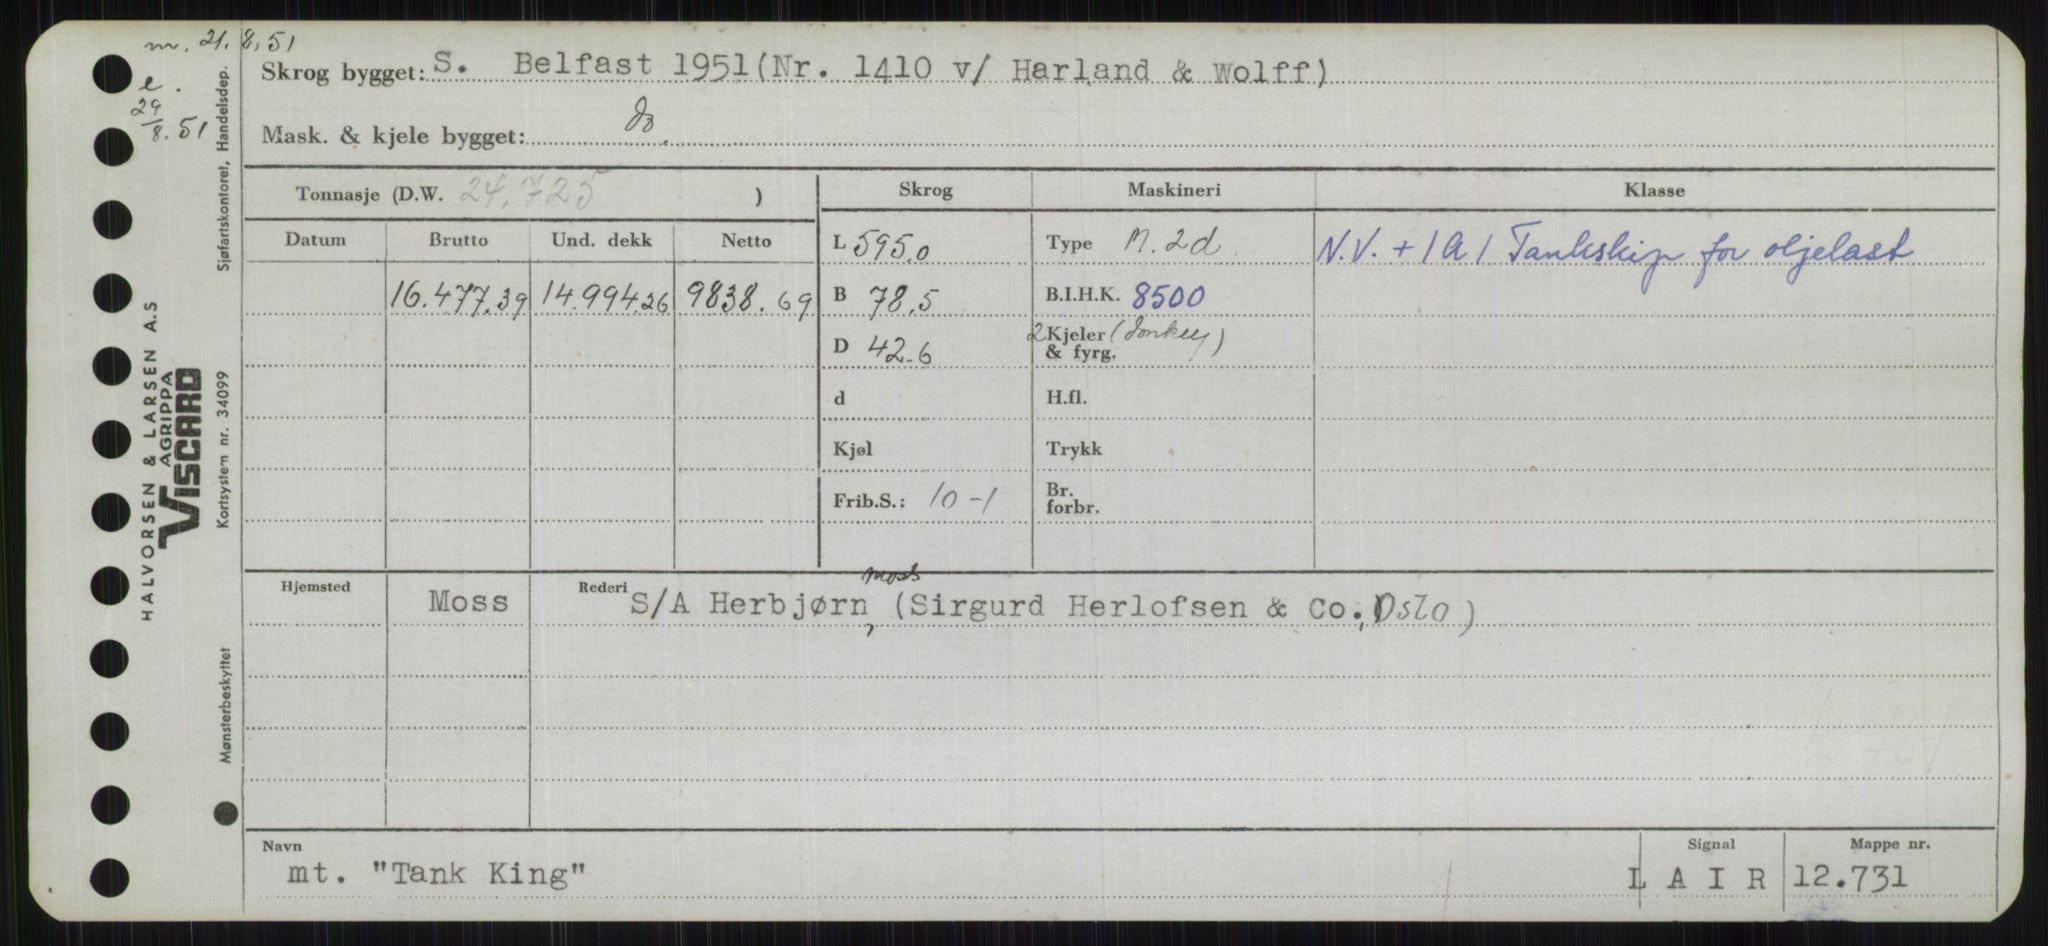 m. 21.8.51
e.
29/8.51
Skrog bygget: S. Belfast 1951(Nr. 1410 v/ Harland & Wolff)
Mask. & kjele bygget: do.
Tonnasje (D.W. 24,725 )
Skrog Maskineri Klasse
Datum Brutto Und. dekk Netto
L 595.0 Type M. 2d. N.V. + 1A1 Tankskip for oljelast
16.477.39 14.994.26 9838.69 B 78.5 B.I.H.K. 8500
D 42.6 2 Kjeler (donkey)
& fyrg.
d H.fl.
Kjøl Trykk
Frib.S.: 10-1 Br.
forbr.
Hjemsted Moss Rederi S/A Herbjørn, Moss (Sirgurd Herlofsen & Co., Oslo)
Navn Signal Mappe nr.
mt. "Tank King" L A I R 12.731
HALVORSEN & LARSEN A.S
AGRIPPA
VISCARD
Sjøfartskontoret, Handelsdep.
Kortsystem nr. 34099
Mønsterbeskyttet